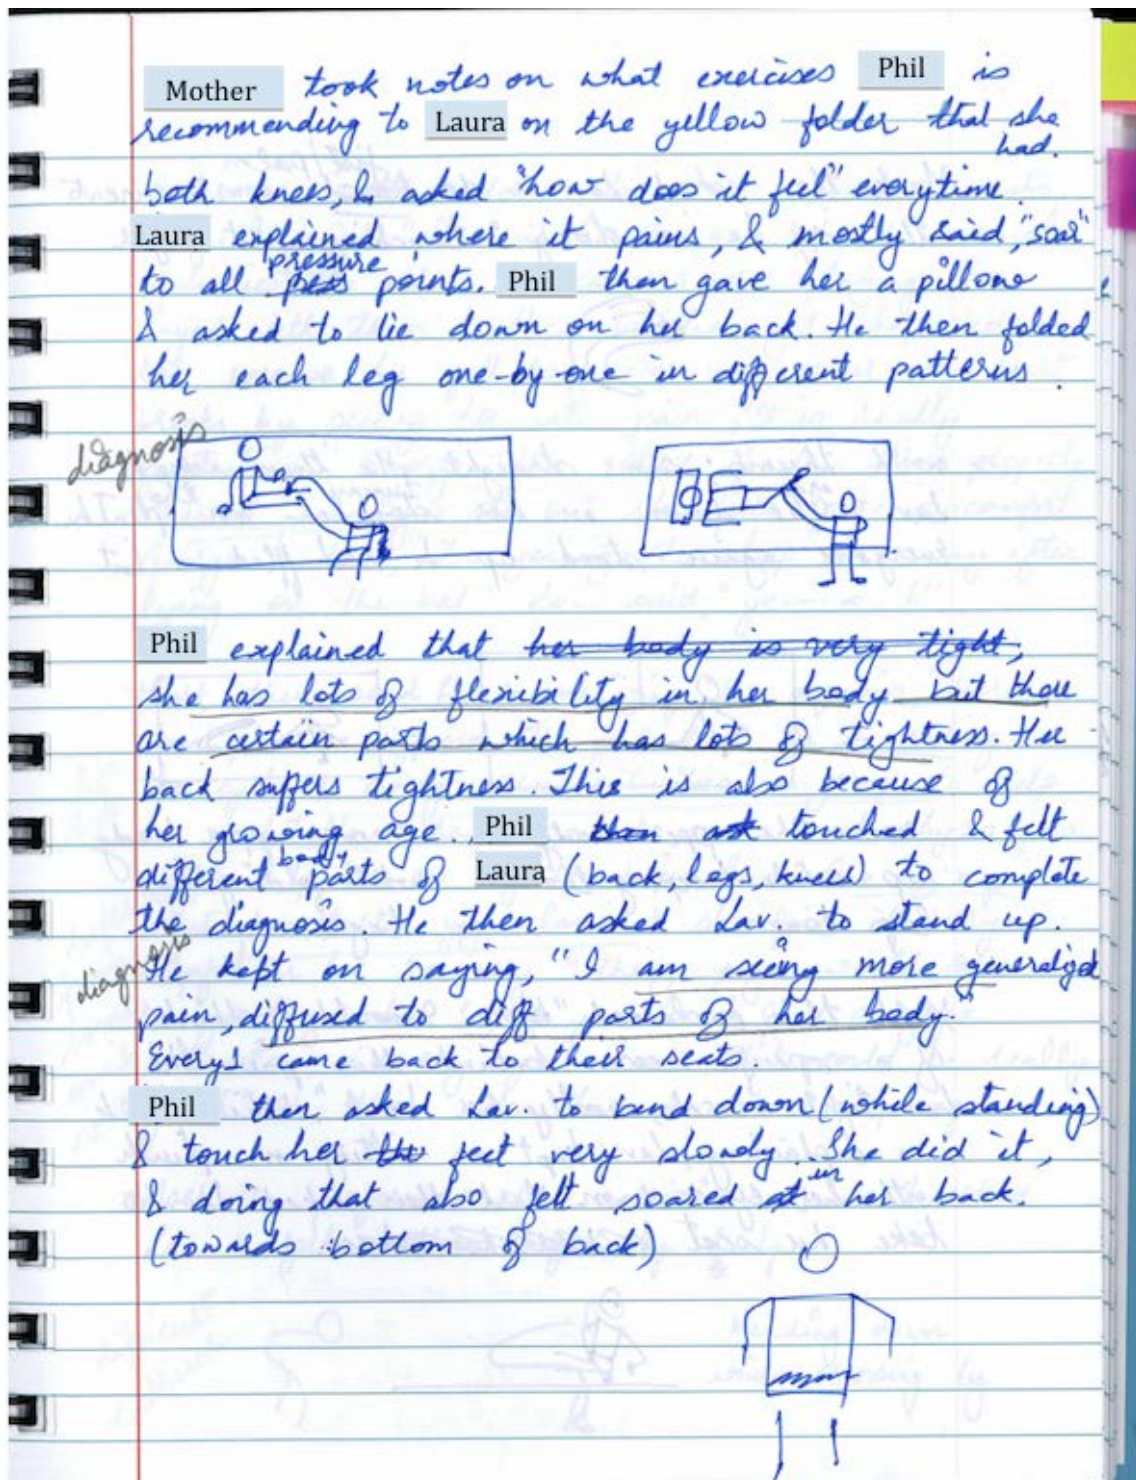 Mother took notes on what exercises Phil is
recommending to Laura on the yellow folder that she
had.
both knees, & asked "how does it feel" everytime.
Laura explained where it pains, & mostly said, "soar"
to all pressure points. Phil then gave her a pillow
& asked to lie down on her back. He then folded
her each leg one-by-one in different patterns.
diagnosis
Phil explained that her body is very tight,
she has lots of flexibility in her body but there
are certain parts which has lots of tightness. Her
back suffers tightness. This is also because of
her growing age. Phil then ask touched & felt
different body parts of Laura (back, legs, knees) to complete
the diagnosis. He then asked Lav. to stand up.
diagnosis
He kept on saying, "I am seing more generalized
pain, diffused to diff parts of her body."
Every1 came back to their seats.
Phil then asked Lav. to bend down (while standing)
& touch her feet very slowly. She did it,
& doing that also felt soared in her back.
(towards bottom of back)